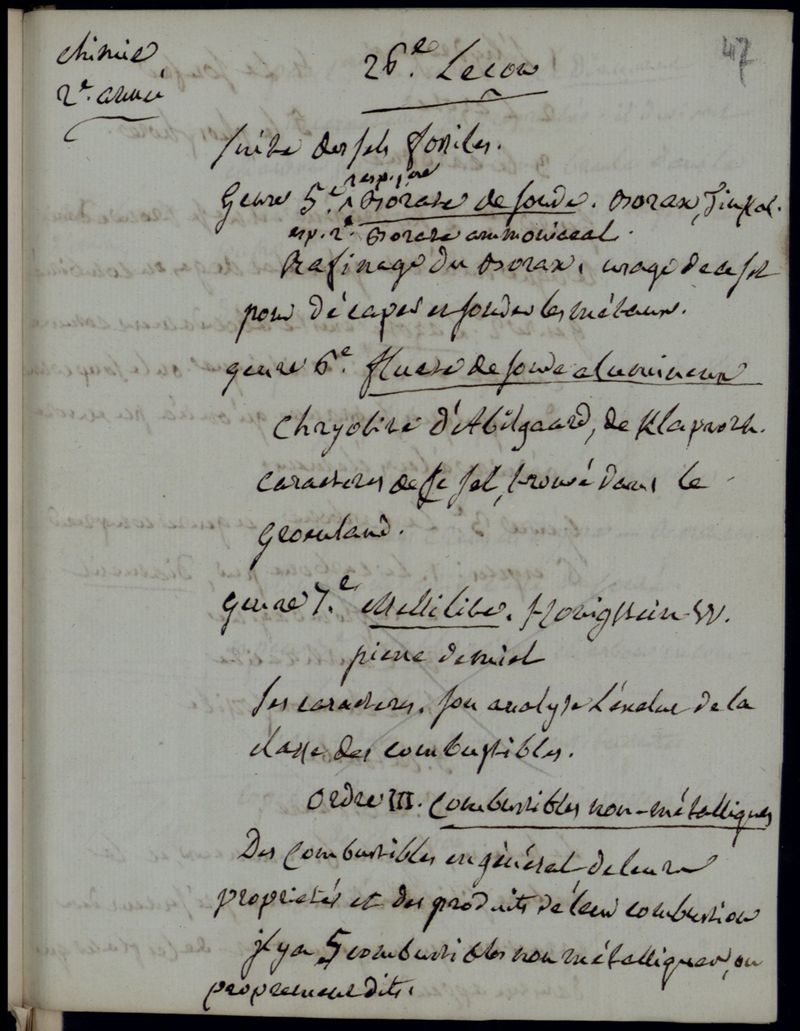 chimie
2e. année
26e. Leçon
47
suite des sels fossiles.
esp. 1ere
Genre 5e. Borate de soude. Borax, Tinkal.
esp. 2e. Borate ammoniacal.
Rafinage du Borax, usage de ce sel
pour décaper et souder les métaux.
genre 6e. fluate de soude alumineux
Chryolite d'Abilgaard, de Klaproth.
caracteres de ce sel, trouvé dans le
Groenland.
genre 7e. Mellilite. Honigstein W.
pierre de miel
ses caracteres. son analyse l'exclue de la
classe des combustibles.
ordre III. combustibles non-métalliques
Des combustibles en général de leurs
propriétés et des produits de leur combustion
il y a 5 combustibles non métalliques, ou
proprement dits.